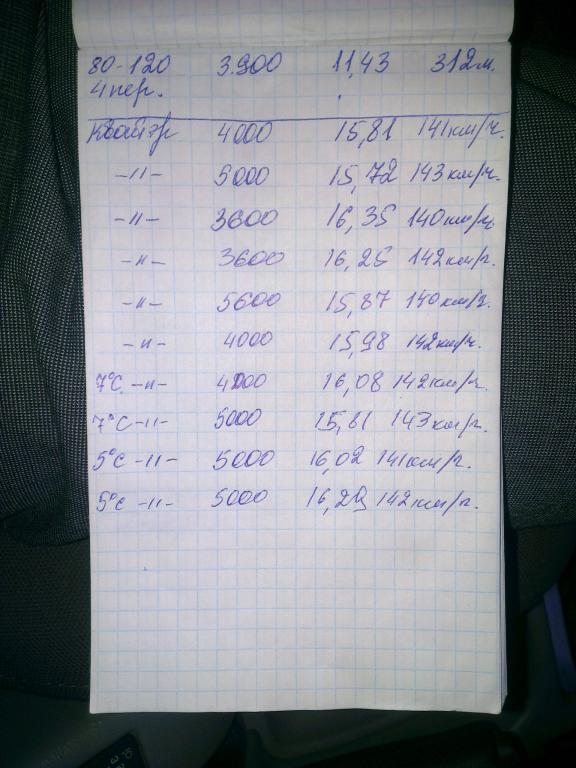 80-120 3.900 11,43 312м.
4 пер.
4000 15,81 141км/ч.
-11- 5000 15,72 143км/ч.
-11- 3600 16,35 140км/ч.
-11- 3600 16,25 142км/ч.
-11- 5600 15,87 140км/ч.
-11- 4000 15,98 142км/ч.
7°С. -11- 4000 16,08 142км/ч.
7°С -11- 5000 15,81 143км/ч.
5°С -11- 5000 16,02 141км/ч.
5°С -11- 5000 16,29 142км/ч.